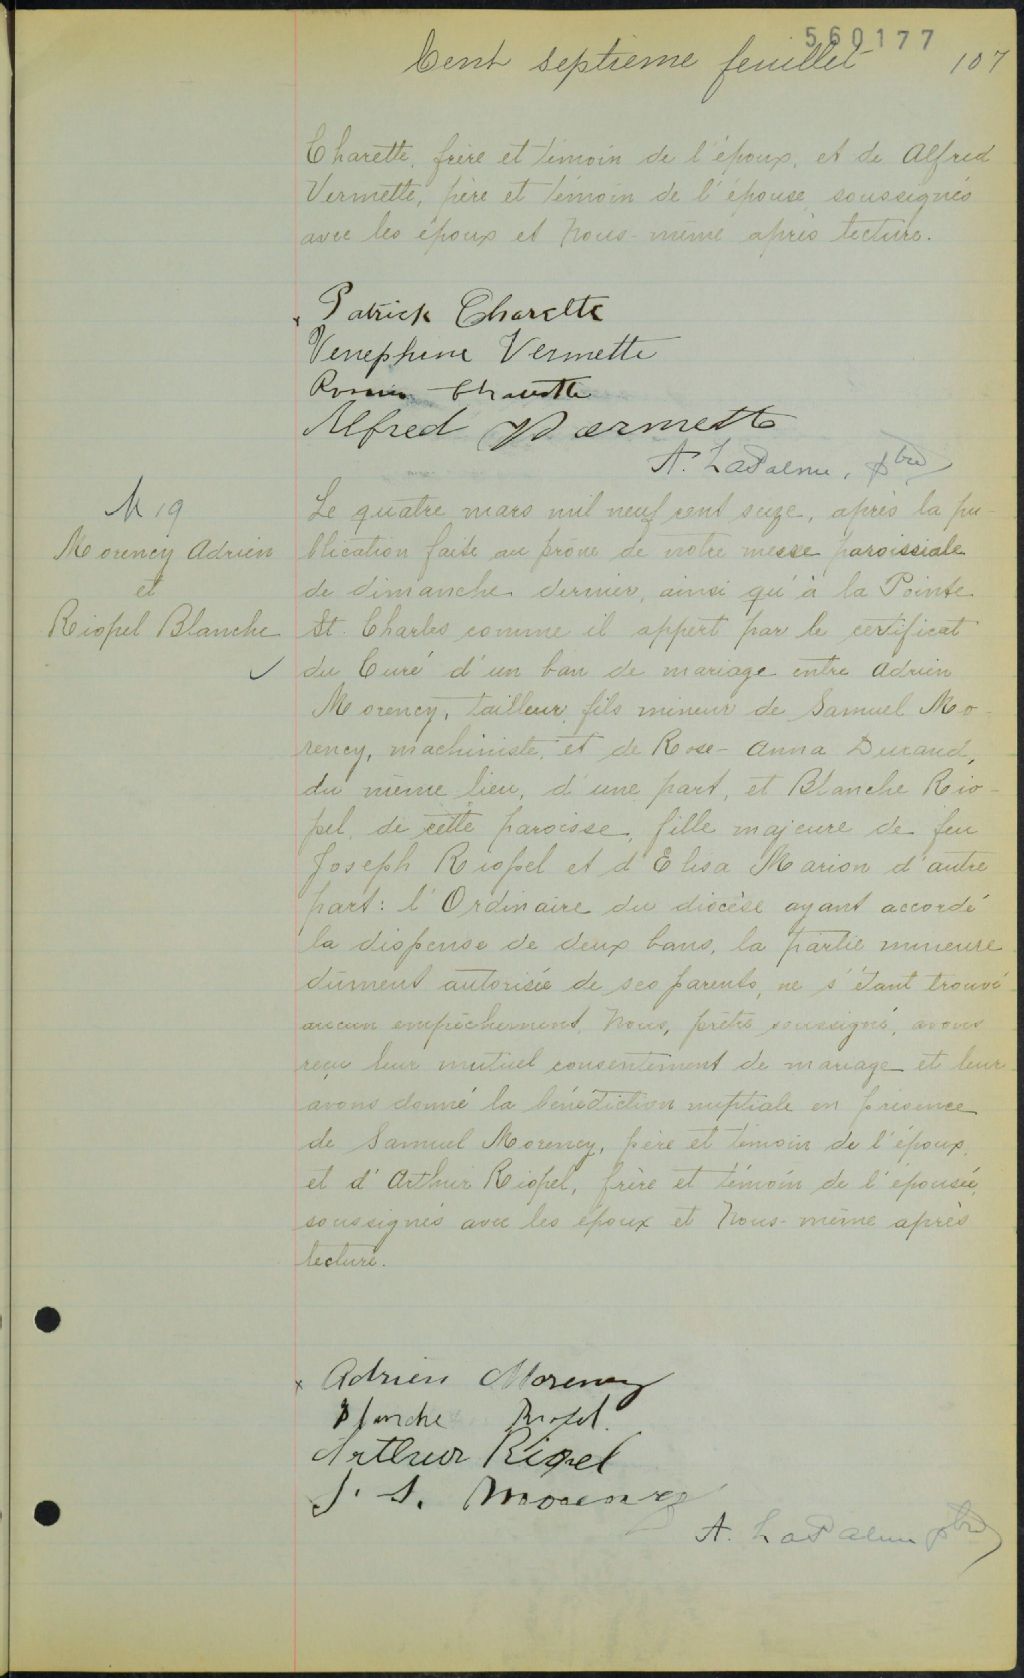 560177
Cent septième feuillet 107
Charette, frère et témoin de l'époux, et de Alfred
Vermette, père et témoin de l'épouse, soussignés
avec les époux et Nous-même après lecture.
Patrick Charette
Venephine Vermette
Charette
Alfred Vermette
A. LaPalme, ptre
M 19
Morency Adrien
et
Riopel Blanche
Le quatre mars mil neuf cent seize, après la pu-
blication faite au prône de notre messe paroissiale
de dimanche dernier, ainsi qu'à la Pointe
St. Charles comme il appert par le certificat
du Curé d'un ban de mariage entre Adrien
Morency, tailleur, fils mineur de Samuel Mo-
rency, machiniste, et de Rose-Anna Durand,
du même lieu, d'une part, et Blanche Rio-
pel, de cette paroisse, fille majeure de feu
Joseph Riopel et d'Elisa Marion d'autre
part: l'Ordinaire du diocèse ayant accordé
la dispense de deux bans, la partie mineure
dûment autorisée de ses parents, ne s'étant trouvé
aucun empêchement, Nous, prêtre soussigné, avons
reçu leur mutuel consentement de mariage et leur
avons donné la bénédiction nuptiale en présence
de Samuel Morency, père et témoin de l'époux,
et d'Arthur Riopel, frère et témoin de l'épousée,
soussignés avec les époux et Nous-même après
lecture.
Adrien Morency
Blanche Riopel.
Arthur Riopel
J. S. Morency
A. LaPalme ptre